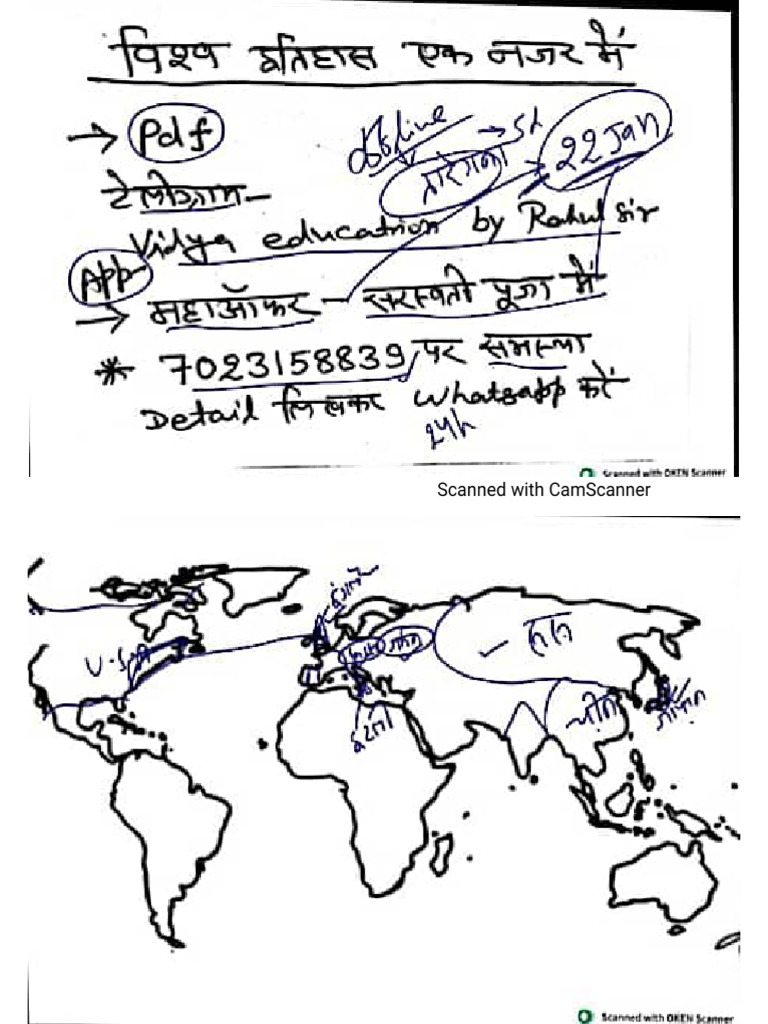 विश्व इतिहास एक नजर में
→ Pdf
offline → SI
तारेगना → 22 Jan
टेलीग्राम -
Vidya education by Rahul Sir
App -
→ महाऑफर - सरस्वती पूजा में
* 7023158839 पर समस्या
Detail लिखकर Whatsapp करें
24h
Scanned with OKEN Scanner
Scanned with CamScanner
U.S.A
रूस
चीन
जापान
इटली
Scanned with OKEN Scanner